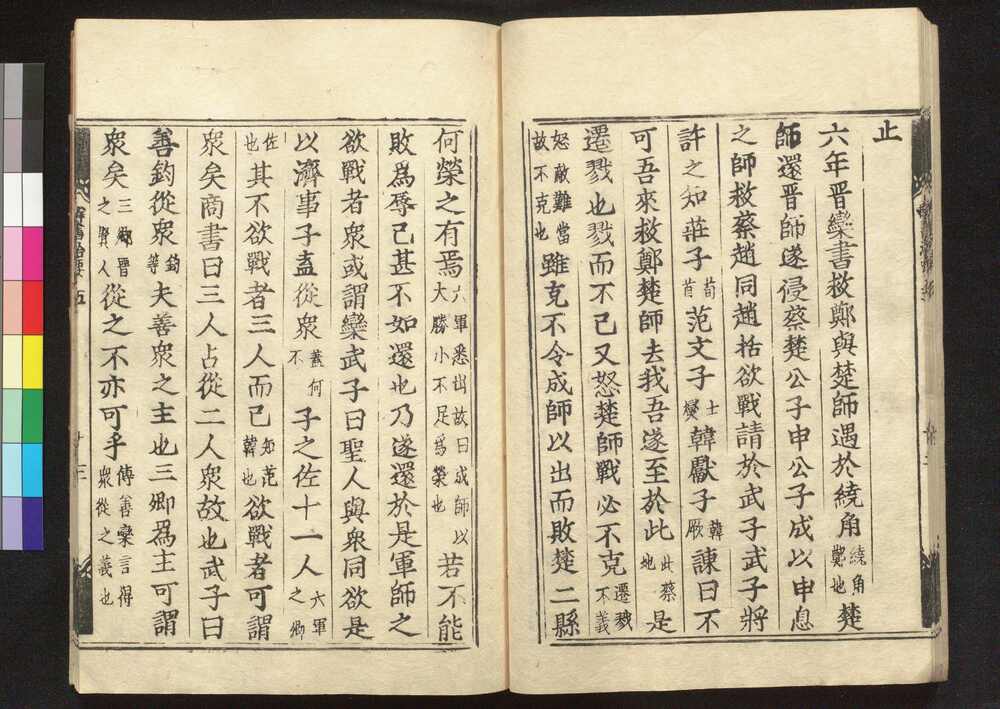 止
六年晋欒書救鄭與楚師遇於繞角繞角鄭地楚
師還晋師遂侵蔡楚公子申公子成以申息
之師救蔡趙同趙括欲戰請於武子武子將
許之知莊子荀首范文子士燮韓獻子韓厥諫曰不
可吾來救鄭楚師去我吾遂至於此此蔡地是
遷戮也戮而不已又怒楚師戰必不克遷戮不義
怒敵難當故不克也雖克不令成師以出而敗楚二縣
何榮之有焉六軍悉出故曰成師以大勝小不足爲榮也若不能
敗爲辱已甚不如還也乃遂還於是軍師之
欲戰者衆或謂欒武子曰聖人與衆同欲是
以濟事子盍從衆盍何不子之佐十一人六軍之卿
佐也其不欲戰者三人而已知范韓也欲戰者可謂
衆矣商書曰三人占從二人衆故也武子曰
善鈞從衆鈞等夫善衆之主也三卿爲主可謂
衆矣三卿晋之賢人從之不亦可乎傳善欒言得衆從之義也